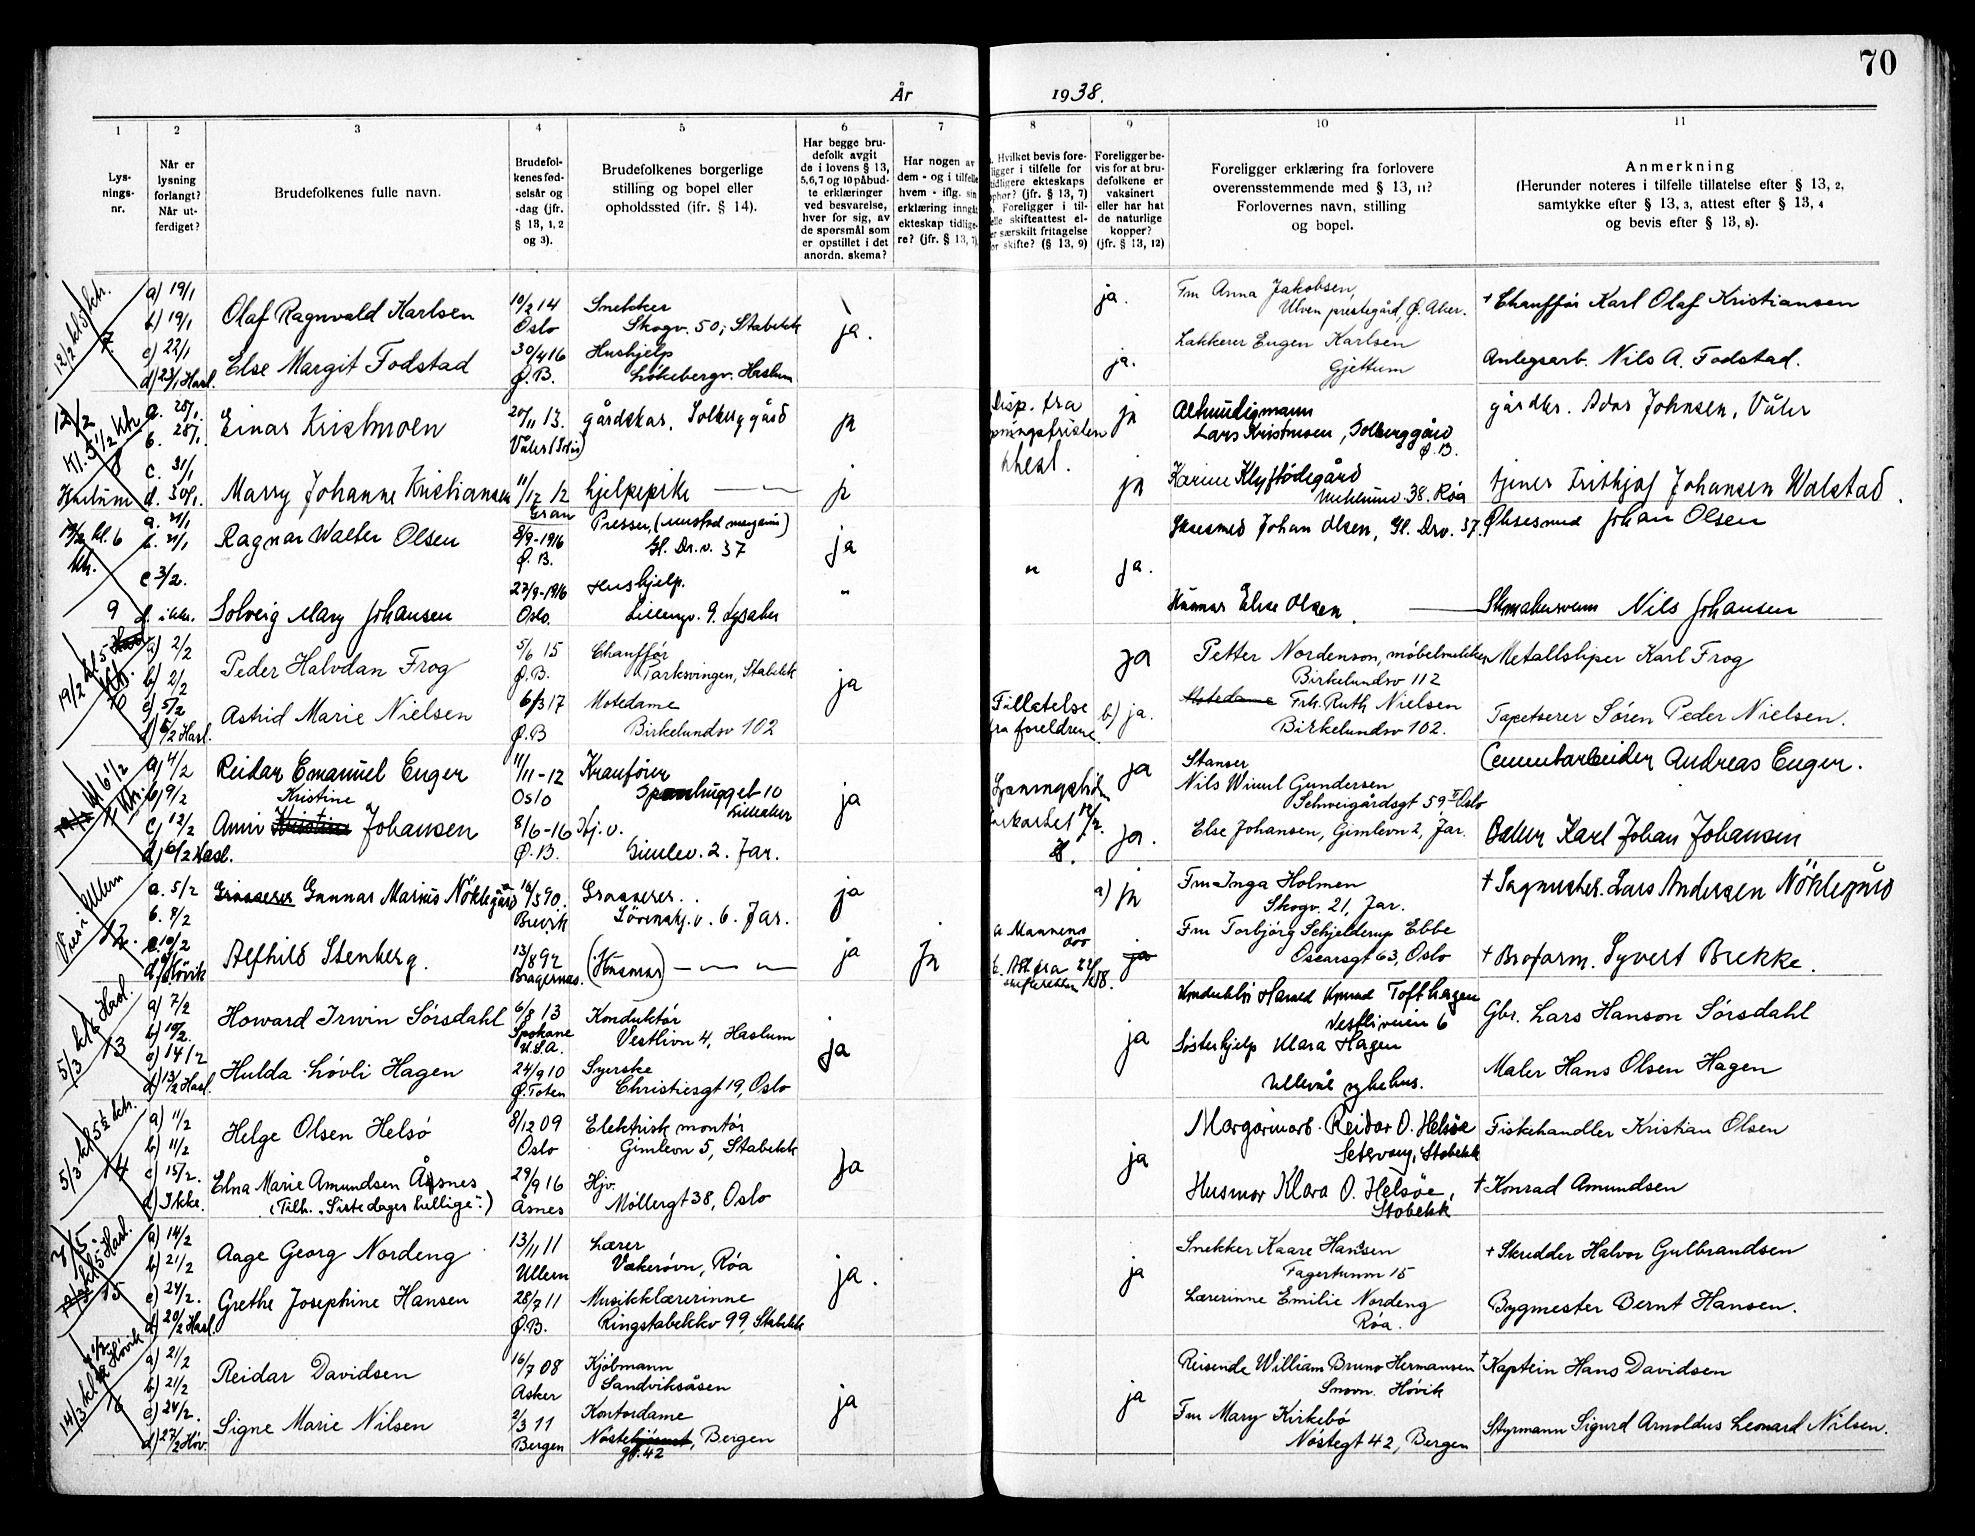 70
År 1938.
1 2 3 4 5 6 7 8 9 10 11
Lysningsnr.
Når er lysning forlangt? Når utferdiget?
Brudefolkenes fulle navn.
Brudefolkenes fødselsår og -dag (jfr. § 13, 1, 2 og 3).
Brudefolkenes borgerlige stilling og bopel eller opholdssted (ifr. § 14).
Har begge brudefolk avgit de i lovens § 13, 5,6,7 og 10 påbudte erklæringer ved besvarelse, hver for sig, av de spørsmål som er opstillet i det anordn. skema?
Har nogen av dem - og i tilfelle hvem - iflg. sin erklæring inngåt ekteskap tidligere? (jfr. § 13, 7)
Hvilket bevis foreligger i tilfelle for tidligere ekteskaps ophør? (jfr. § 13, 7) Foreligger i tilfelle skifteattest eller særskilt fritagelse for skifte? (§ 13, 9)
Foreligger bevis for at brudefolkene er vaksinert eller har hat de naturlige kopper? (jfr. § 13, 12)
Foreligger erklæring fra forlovere overensstemmende med § 13, 11? Forlovernes navn, stilling og bopel.
Anmerkning
(Herunder noteres i tilfelle tillatelse efter § 13, 2, samtykke efter § 13, 3, attest efter § 13, 4 og bevis efter § 13, 8).
12/2 kl 5 kr.
7
a) 19/1
b) 19/1
c) 22/1
d) 23/1 Hasl.
Olaf Ragnvald Karlsen
10/2 14
Oslo
Snekker
Skogv. 50, Stabekk
ja.
ja.
Fru Anna Jakobsen,
Ulven prestegård, Ø. Aker.
+ Chauffør Karl Olaf Kristiansen
Else Margit Fodstad
30/4 16
Ø.B.
Hushjelp
Løkebergv. Haslum
ja.
Lakkerer Eugen Karlsen
Gjettum
Anlegsarb. Nils A. Fodstad.
12/2
Kl. 5 1/2 kr
8
Haslum
a. 28/1
b. 28/1
c. 31/1
d. 30/1
Einar Kristmoen
20/11 13.
Våler (Solør)
gårdskar, Solberg gård
ja
Disp. fra
ja
Lars Kristmoen, Solberg gård
Ø.B.
gårdbr. Adar Johnsen, Våler
Marry Johanne Kristiansen
11/12 12
Gran
hjelpepike
ja
ja
Karine Klyftødegård
38. Røa
tjener Frithjof Johansen Walstad.
kl. 6
kr.
9
c 3/2.
d. ikke.
Ragnar Walter Olsen
8/9-1916
Ø.B.
Presser,
Gl. Dr.v. 37
ja
"
ja.
Johan Olsen, Gl. Drv. 37.
Øksesmed Johan Olsen
Solveig Mary Johansen
27/9-1916
Oslo.
Hushjelp.
Lillengv. 9. Lysaker
"
Husmor Else Olsen.
Nils Johansen
19/2 kl 5
10
a) 2/2
b) 2/2
c) 5/2
d) 6/2 Hasl.
Peder Halvdan Frog
5/6 15
Ø.B.
Chauffør
Parksvingen, Stabekk
ja
ja
Petter Nordenson, møbelsnekker
Birkelundsv 112
Metallsliper Karl Frog
Astrid Marie Nielsen
6/3 17
Ø.B
Motedame
Birkelundsv 102
Tillatelse
fra foreldrene.
b) ja.
Motedame Frk. Ruth Nielsen
Birkelundsv 102.
Tapetserer Søren Peder Nielsen.
kl 6 1/2
11
a) 4/2
b) 9/2
c) 12/2
d) 6/2 Hasl.
Reidar Emanuel Enger
11/11-12
Oslo
Kranfører
Lilleaker
ja
ja
Stanser
Gundersen
Schweigårdsgt 59 II Oslo
Cementarbeider Andreas Enger.
Kristine
Anna Johansen
8/6-16
Ø.B.
Hj. v.
Gimlev. 2. Jar.
ja.
Else Johansen, Gimlevn 2, Jar.
Baker Karl Johan Johansen
Vies i Ullern
12.
a. 5/2
b. 8/2
c. 10/2
d. Høvik
Grosserer Gunnar Marius Nöklegård
16/5 90.
Brevik
Grosserer.
Lövenskj.v. 6. Jar.
ja
a) ja
Fru Inga Holmen
Skogv. 21, Jar.
+ Sagmester. Lars Andersen Nöklegård
Alfhild Stenberg.
13/8 92
Bragernes.
(Husmor)
ja
ja
a Mannens
død
b. Att. fra
skifteretten
ja
Fru Torbjørg Schjelderup Ebbe
Oscarsgt 63, Oslo
+ Brofarm. Syvert Brekke.
5/3 kl 6 Hasl.
13
a) 7/2
b) 10/2.
c) 14/2
d) 13/2 Hasl.
Howard Irwin Sørsdahl
6/8 13
Spokane
U.S.A.
Konduktør
Vestlivn 4, Haslum
ja
ja
Konduktør Harald Konrad Tofthagen
Vestliveien 6
Gbr. Lars Hanson Sørsdahl
Hulda Løvli Hagen
24/9 10
Ø. Toten
Syerske
Christiesgt 19, Oslo
Søsterhjelp Klara Hagen
Ullevål sykehus.
Maler Hans Olsen Hagen
5/3 kl 5 1/2 kr.
14
a) 11/2
b) 11/2
c) 15/2.
d) Ikke.
Helge Olsen Helsø
8/12 09
Oslo
Elektrisk montør
Gimlevn 5, Stabekk
ja
ja
Margarinarb. Reidar O. Helsøe
Setervang, Stabekk
Fiskehandler Kristian Olsen
Elna Marie Amundsen Åsnes
(Tilh. „Siste dagers hellige“.)
29/9 16
Åsnes
Hjv.
Møllergt 38, Oslo
Husmor Klara O. Helsøe,
Stabekk
+ Konrad Amundsen
kl 5 Hasl.
15
a) 14/2
b) 21/2
c) 24/2.
d) 20/2 Hasl.
Aage Georg Nordeng
13/11 11
Ullern
Lærer
Vækerøvn, Røa
ja.
ja
Snekker Kaare Hansen
Fagertunvn 15
+ Skredder Halvor Gulbrandsen
Grethe Josephine Hansen
28/7 11
Ø.B.
Musikklærerinne
Ringstabekkv 99, Stabekk
Lærerinne Emilie Nordeng
Røa.
Bygmester Bernt Hansen.
14/3 kl Høvik
16
a) 21/2
b) 21/2
c) 24/2.
d) 27/2 Høv.
Reidar Davidsen
16/7 08
Asker
Kjøbmann
Sandviksåsen
ja
ja
Reisende William Bruno Hermansen
Snovn. Høvik
+ Kaptein Hans Davidsen
Signe Marie Nilsen
2/3 11
Bergen
Kontordame
Nøstehjørnet, Bergen
gt. 42
Fru Mary Kirkebø
Nøstegt 42, Bergen
Styrmann Sigurd Arnoldus Leonard Nilsen.